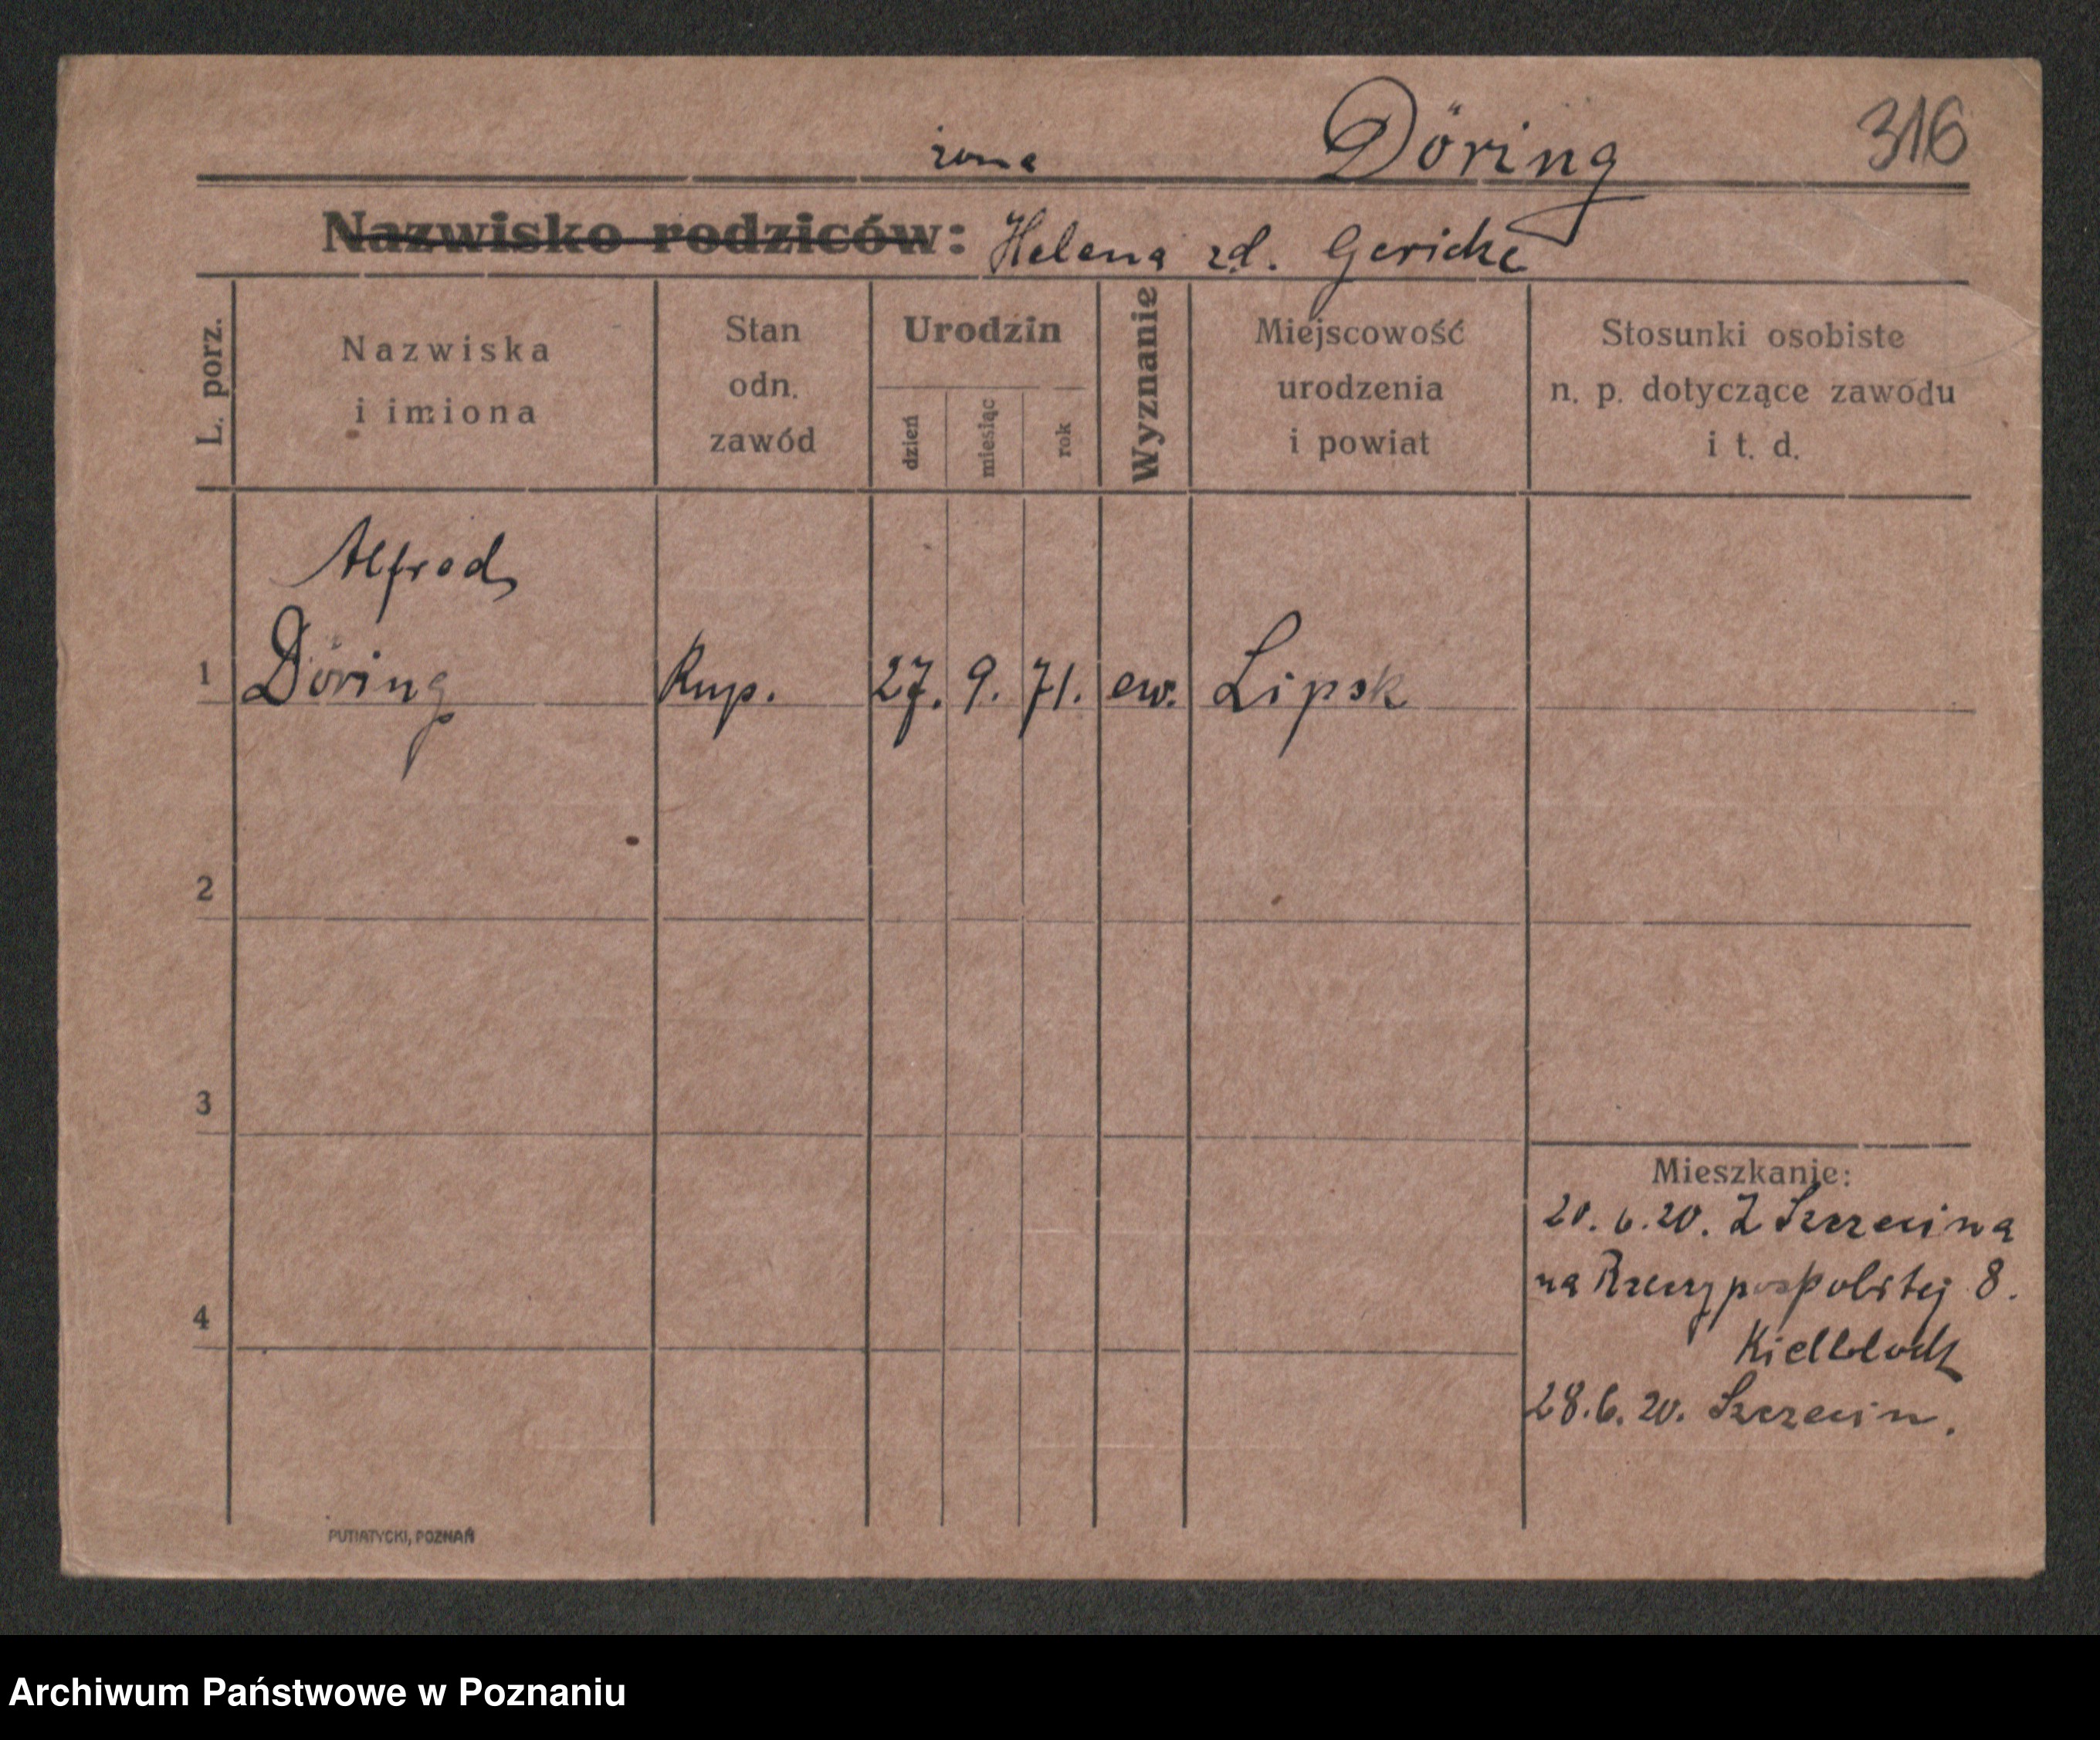 316
żona Döring
Nazwisko rodziców: Helena zd. Gericke
L. porz.
Nazwiska
i imiona
Stan
odn.
zawód
Urodzin
dzień
miesiąc
rok
Wyznanie
Miejscowość
urodzenia
i powiat
Stosunki osobiste
n. p. dotyczące zawodu
i t. d.
Alfred
1 Döring Kup. 27. 9. 71. ew. Lipsk
2
3
4
Mieszkanie:
20. 6. 20. Z Szczecina
na Rzeczypospolitej 8.
28. 6. 20. Szczecin.
PUTIATYCKI, POZNAŃ
Archiwum Państwowe w Poznaniu